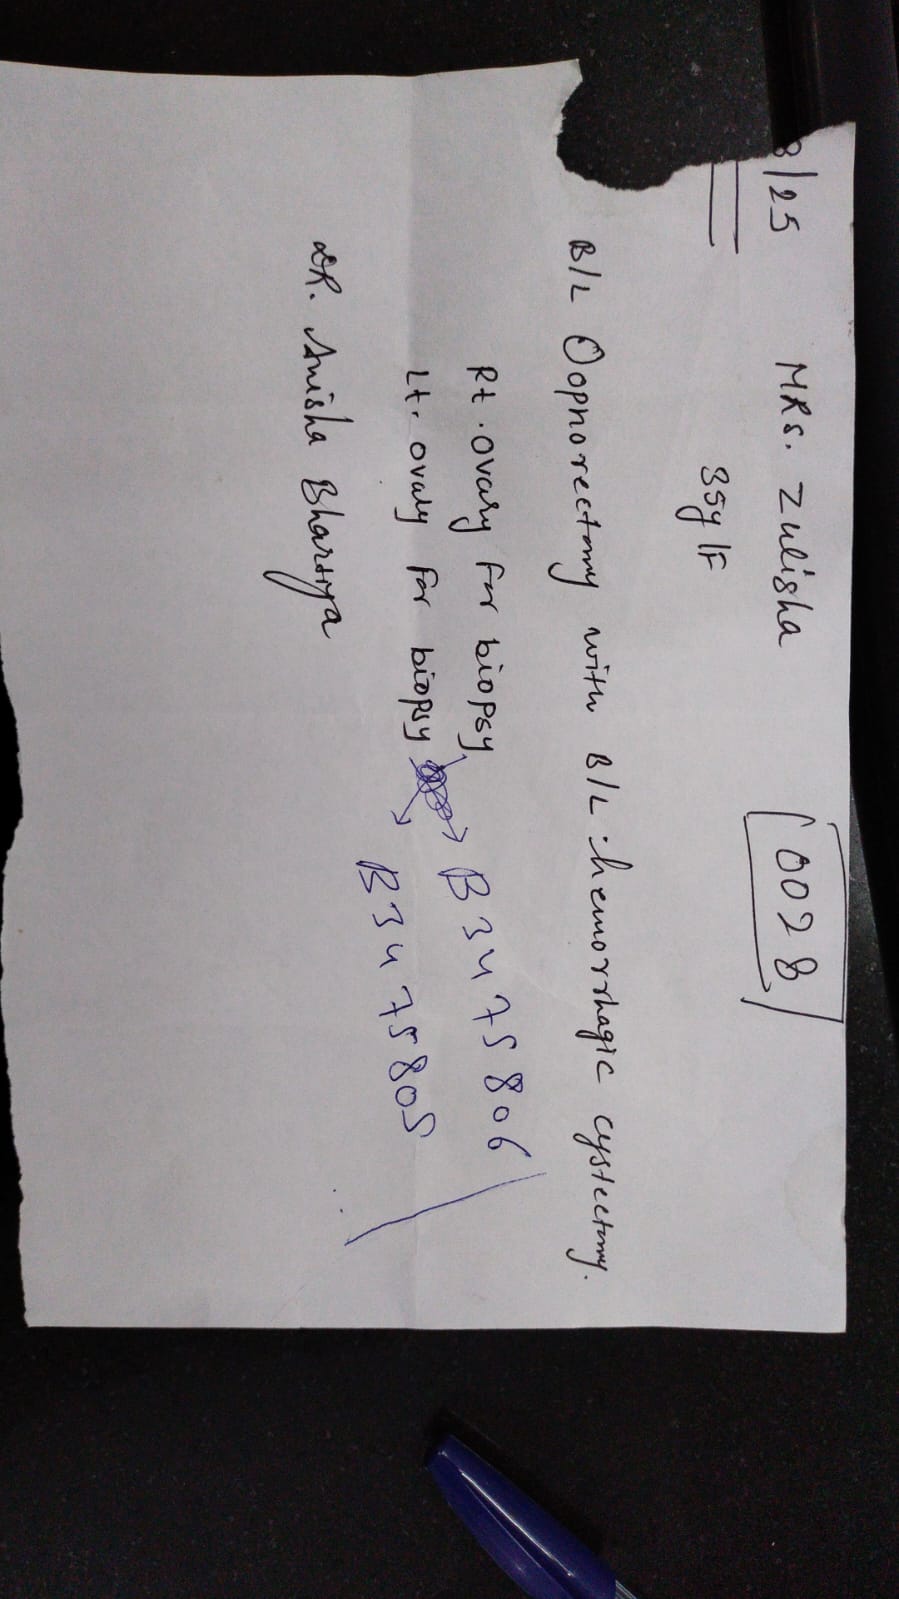 8/25 MRs. Zulisha 0028
35y/F
B/L Oopnorectomy with B/L hemorrhagic cystectomy.
Rt. ovary for biopsy → B3475806
Lt. ovary for biopsy → B3475805
DR. Anisha Bhartiya